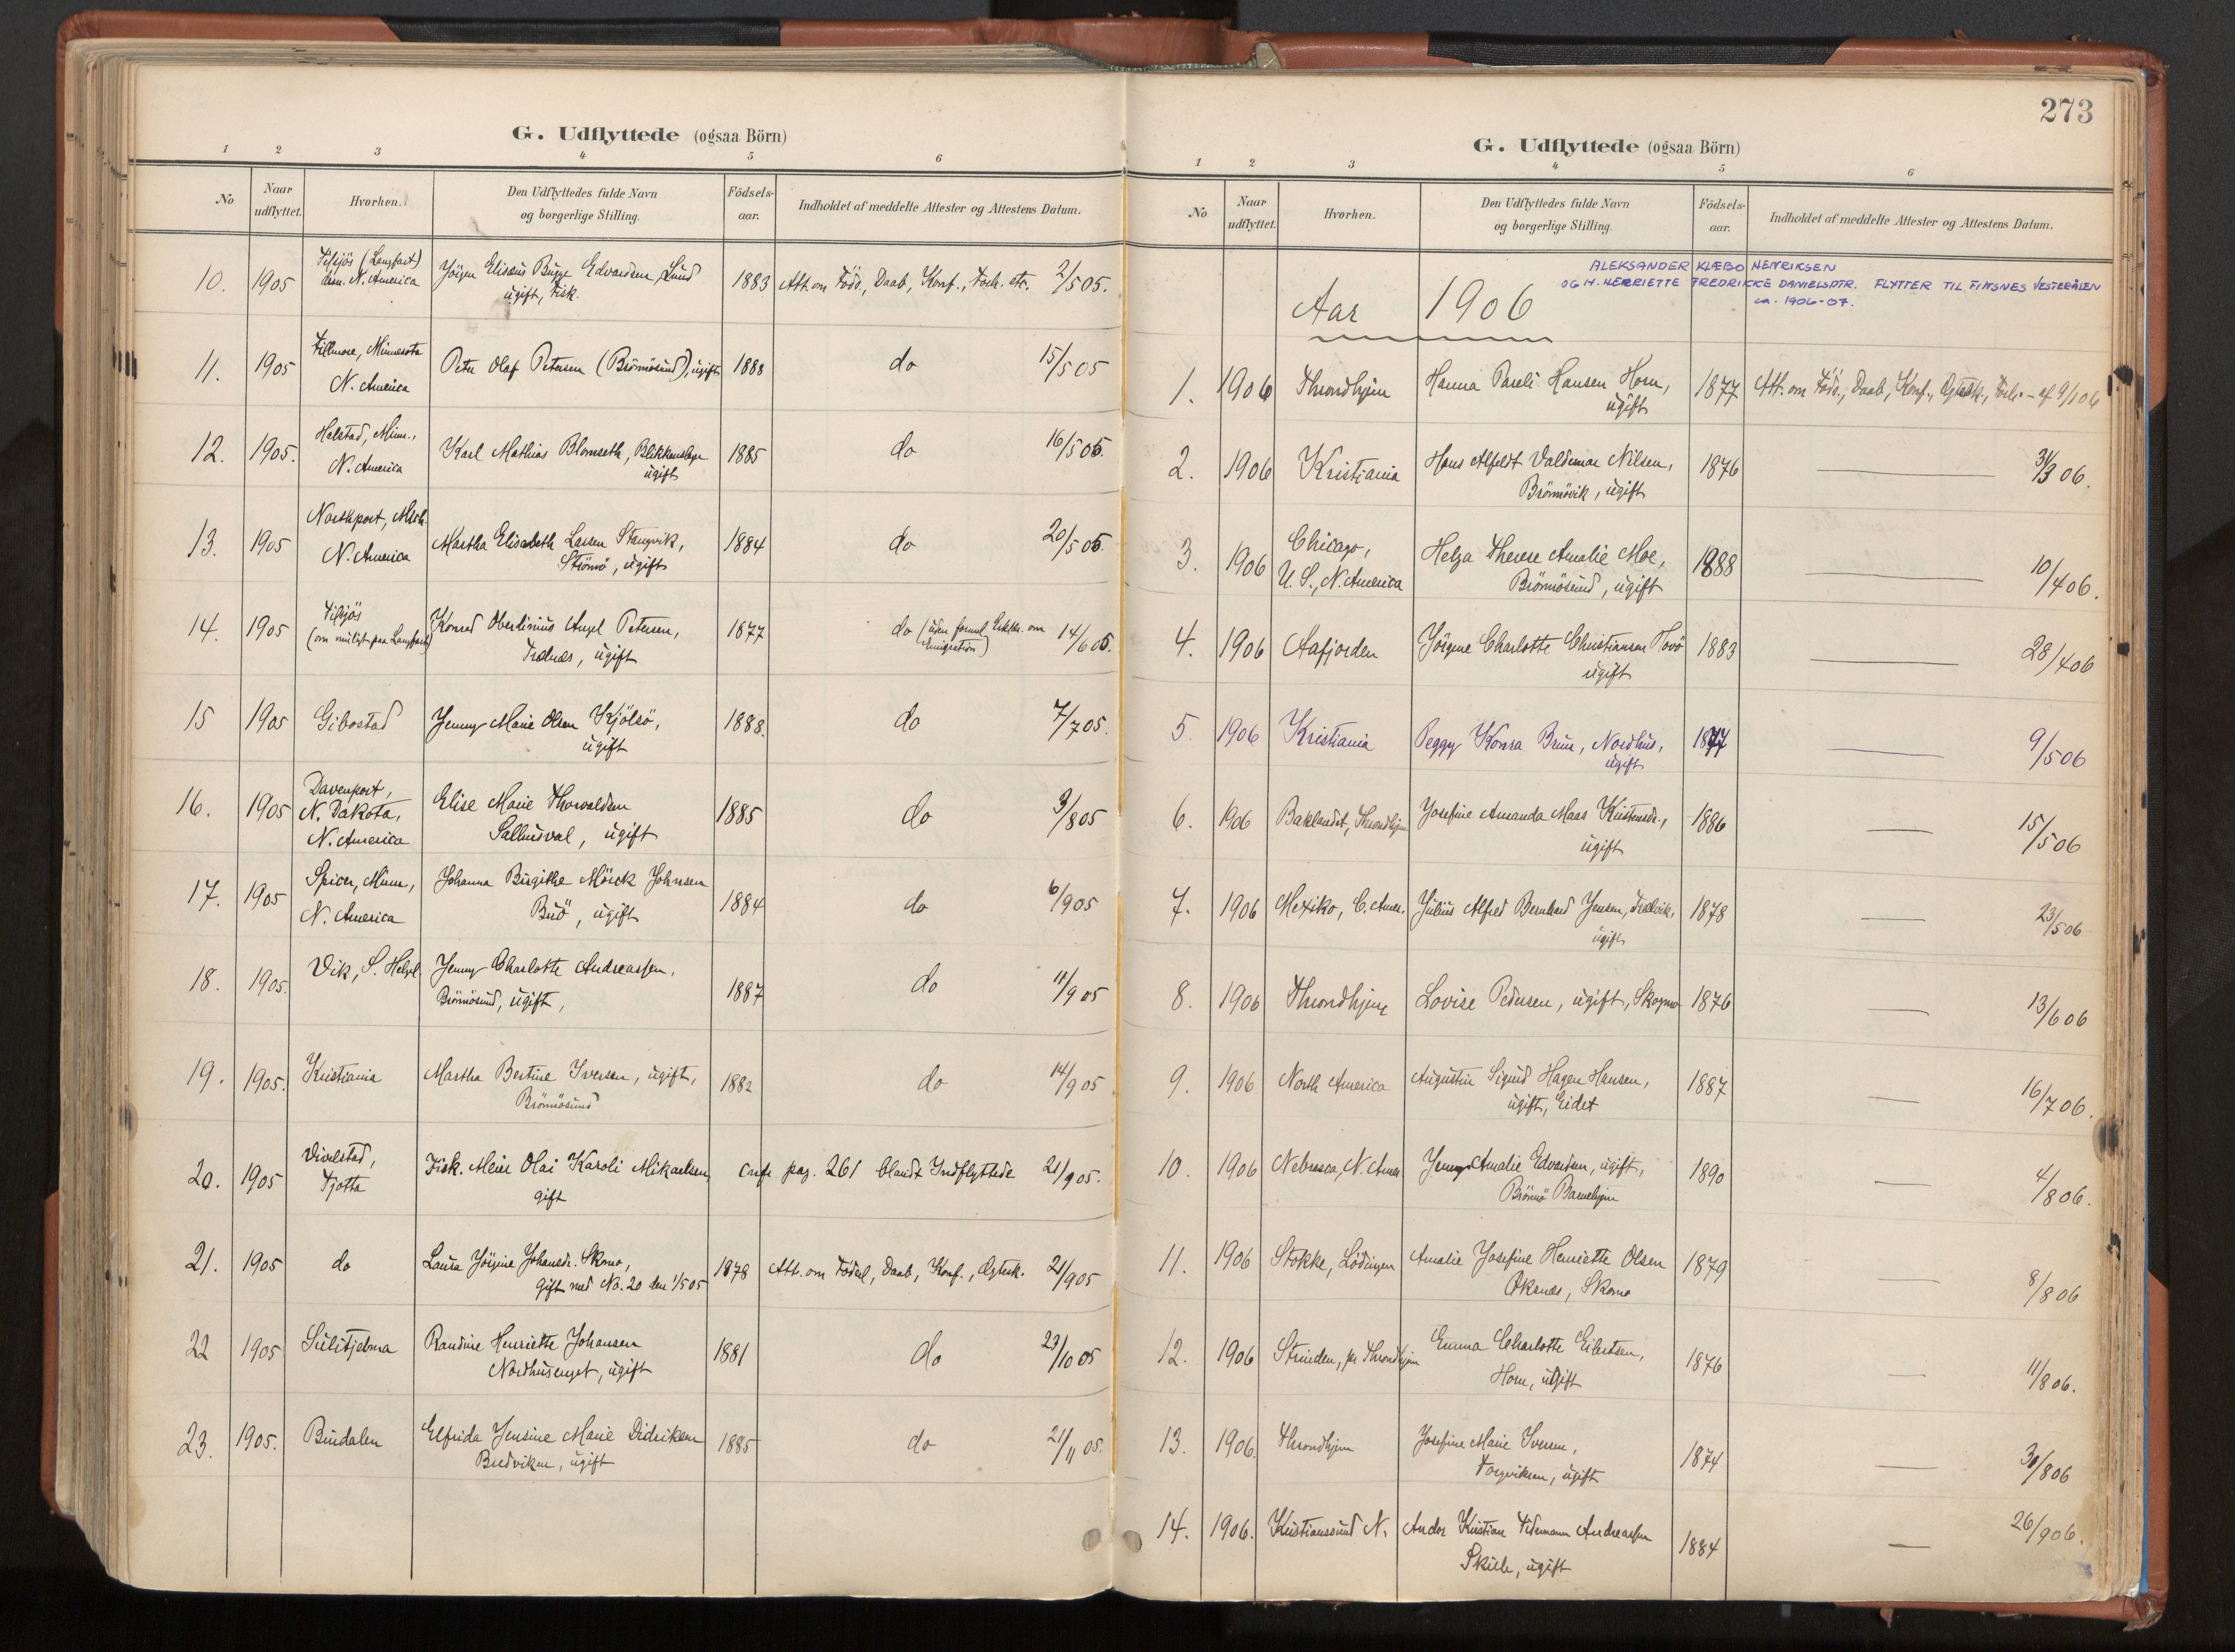 G. Udflyttede (ogsaa Börn)
1 2 3 4 5 6
No. Naar udflyttet. Hvorhen. Den Udflyttedes fulde Navn og borgerlige Stilling. Födsels-aar. Indholdet af meddelte Attester og Attestens Datum.
10. 1905 Tilsjös (Langfart) dsn. N. America Jörgen Elisæus Bugge Edvardsen Lund 1883 Att. om Föds., Daab, Konf., Forh. etc. 2/5 05.
ugift, Fisk.
11. 1905 Fillmore, Minnesota Peter Olaf Petersen (Brönnösund), ugift 1888 do 15/5 05
N. America
12. 1905. Halstad, Minn., Karl Mathias Blomseth, Blikkenslager 1885 do 16/5 05.
N. America ugift
13. 1905 Northport, Mich. Martha Elisabeth Larsen Stangvik, 1884 do 20/5 05.
N. America Strömö, ugift
14. 1905 Tilsjös Konrad Oberlinius Angel Petersen, 1877 do (uden formel Erklær. om 14/6 05.
(om muligt paa Langfart) Trælnæs, ugift Emigration)
15 1905 Gibostad Jenny Marie Olsen Kjölsö, 1888. do 7/7 05.
ugift
16. 1905 Davenport, Elise Marie Thorvaldsen 1885 do 3/8 05
N. Dakota, Salhusval, ugift
N. America
17. 1905 Spicer, Minn., Johanna Birgithe Mörck Johnsen 1884 do 6/9 05
N. America Buö, ugift
18. 1905. Vik, S. Helgl. Jenny Charlotte Andreassen, 1887 do 11/9 05
Brönnösund, ugift,
19. 1905. Kristiania Martha Bertine Iversen, ugift, 1882 do 14/9 05
Brönnösund
20. 1905 Vivelstad, Fisk. Meier Olai Karoli Mikaelsen, Confr pag. 261 blandt Indflyttede 21/9 05.
Tjötta gift
21. 1905 do Laura Jörgine Johansdr. Skomo, 1878 Att. om Födsel, Daab, Konf., Ægtesk. 21/9 05
gift med No. 20 den 1/5 05
22 1905 Sulitjelma Randine Henriette Johansen 1881 do 23/10 05
Nordhusenget, ugift
23. 1905. Bindalen Elfrida Jensine Marie Didriksen 1885 do 21/11 05.
Bredviken, ugift
273
G. Udflyttede (ogsaa Börn)
1 2 3 4 5 6
No. Naar udflyttet. Hvorhen. Den Udflyttedes fulde Navn og borgerlige Stilling. Födsels-aar. Indholdet af meddelte Attester og Attestens Datum.
ALEKSANDER KLÆBO HENRIKSEN
OG H. HENRIETTE FREDRIKKE DANIELSDTR. FLYTTER TIL FINSNES VESTERÅLEN
ca. 1906-07.
Aar 1906
1. 1906 Throndhjem Hanna Pareli Hansen Horn, 1877 Att. om Föds., Daab, Konf., Ægtesk., Forh. – af 9/1 06
ugift
2. 1906 Kristiania Hans Alfeldt Valdemar Nilsen, 1876 31/3 06.
Brönnövik, ugift
3. 1906 Chicago, Helga Therese Amalie Moe, 1888 10/4 06.
U. S., N. America Brönnösund, ugift
4. 1906 Aafjorden Jörgine Charlotte Christiansen Torö 1883 28/4 06
ugift
5. 1906 Kristiania Peggy Konra Bruun, Nordhus, 1877 9/5 06
ugift
6. 1906 Baklandet, Throndhjem Josefine Amanda Maas Kristensdr., 1886 15/5 06
ugift
7. 1906 Mexiko, C. Amer. Julius Alfred Bernhard Jensen, Trælvik, 1878 23/5 06
ugift
8. 1906 Throndhjem Lovise Pedersen, ugift, Skogmo 1876 13/6 06
9. 1906 North America Augustin Sigurd Hagen Hansen, 1887 16/7 06.
ugift, Eidet
10. 1906 Nebrasca, N. Amer. Jenny Amalie Edvardsen, ugift, 1890 4/8 06.
Brönnö Barnehjem
11. 1906 Stokke, Lödingen Amalie Josefine Henriette Olsen 1879 8/8 06
Oksnæs, Skomo
12. 1906 Strinden, pr Throndhjem Emma Charlotte Eilertsen, 1876 11/8 06.
Horn, ugift
13. 1906. Throndhjem Josefine Marie Iversen, 1874 30/8 06
Torgviksen, ugift
14. 1906. Kristianssund N. Andor Kristian Tidemann Andreassen 1884 26/9 06.
Skille, ugift